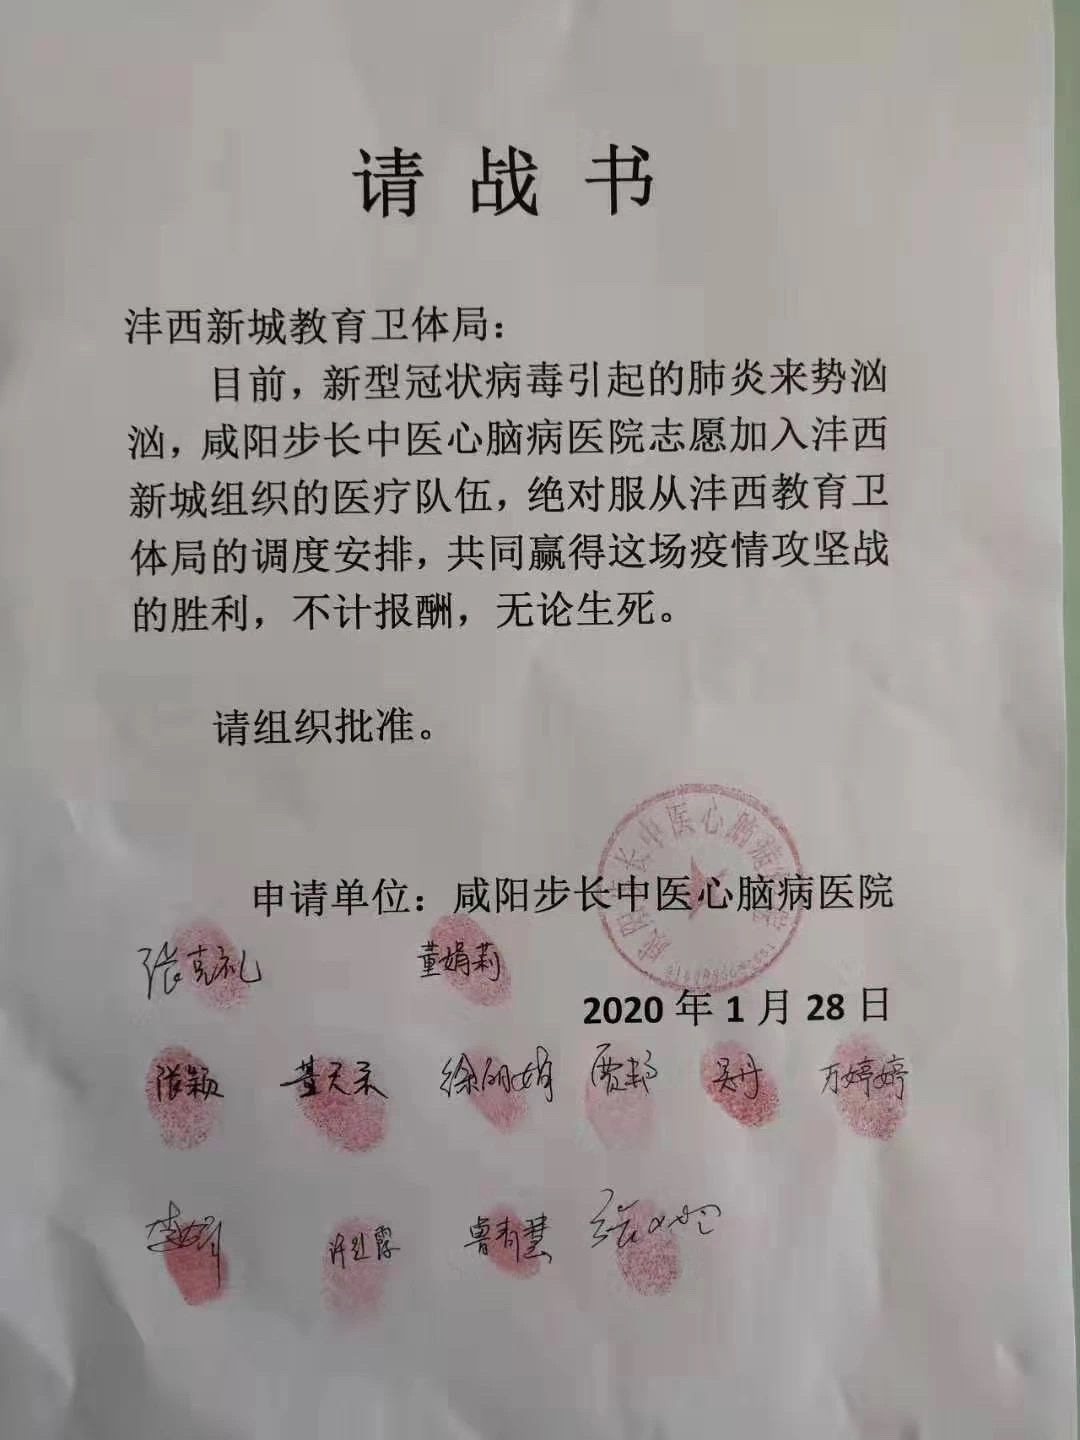 请战书
沣西新城教育卫体局：
目前，新型冠状病毒引起的肺炎来势汹
汹，咸阳步长中医心脑病医院志愿加入沣西
新城组织的医疗队伍，绝对服从沣西教育卫
体局的调度安排，共同赢得这场疫情攻坚战
的胜利，不计报酬，无论生死。
请组织批准。
申请单位：咸阳步长中医心脑病医院
张克礼 董娟莉
2020年1月28日
张颖 徐明娟 吴丹 万婷婷
许红霞 鲁青慧